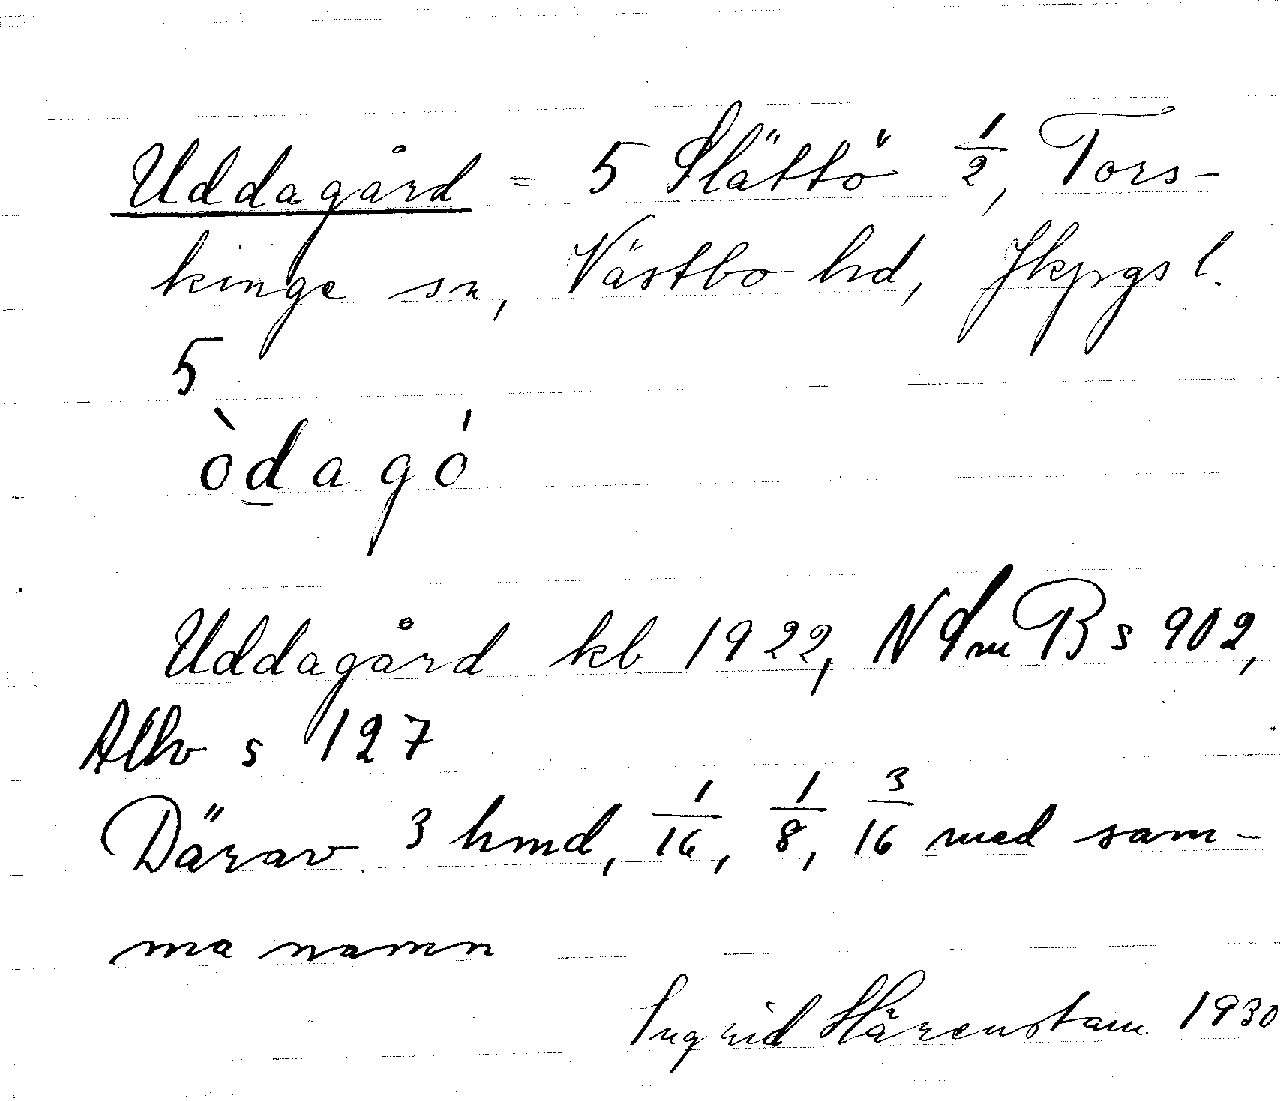 Uddagård = 5 Slättö 1/2, Tors-
kinge sn, Västbo hd, Jkpgs l.
5
òdagó
Uddagård kb 1922, NdmB s 902,
Allv s 127
Därav 3 hmd, 1/16, 1/8, 3/16 med sam-
ma namn
Ingrid Härenstam 1930